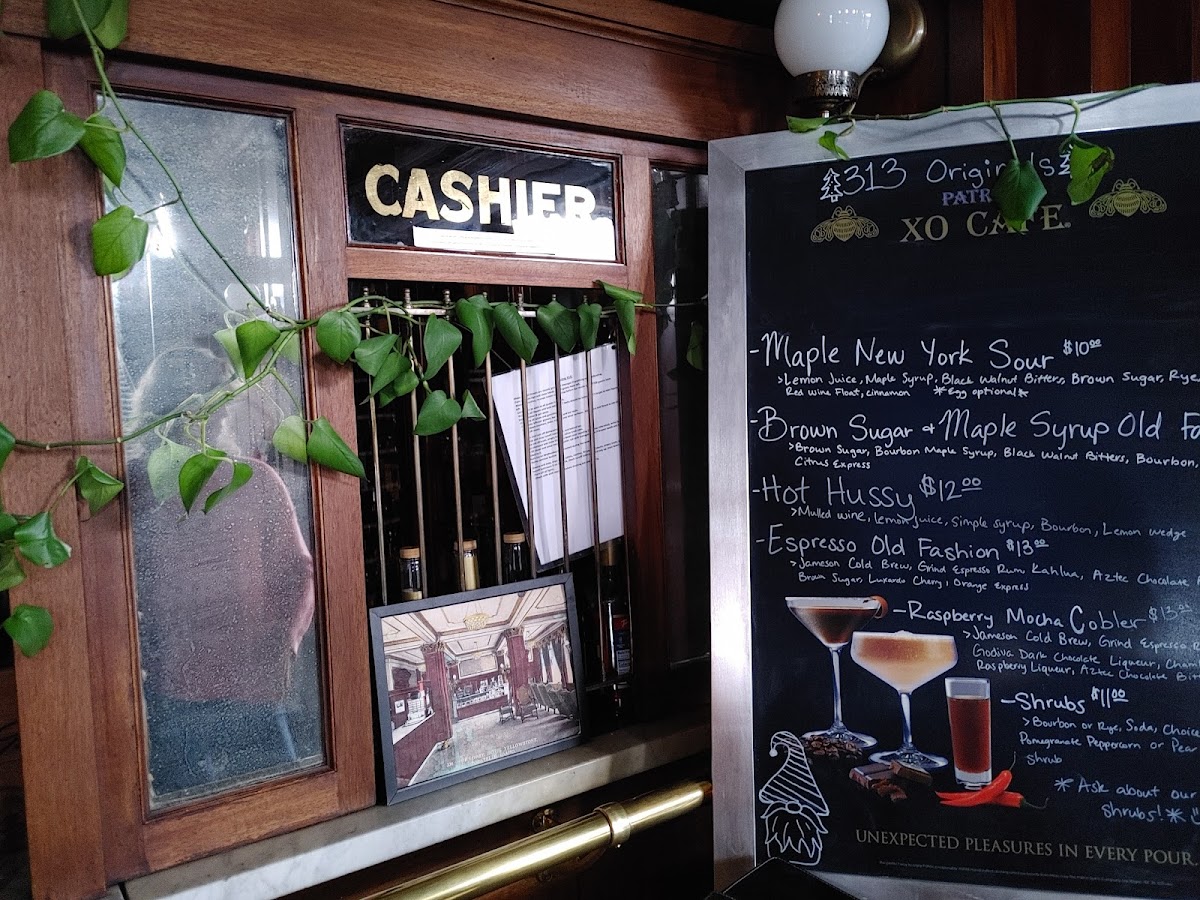 CASHIER
313 Originals
PATR
XO CAFE
-Maple New York Sour $10.00
>Lemon Juice, Maple Syrup, Black Walnut Bitters, Brown Sugar, Rye
Red Wine Float, cinnamon *Egg optional*
-Brown Sugar + Maple Syrup Old Fa
>Brown Sugar, Bourbon Maple Syrup, Black Walnut Bitters, Bourbon,
Citrus Express
-Hot Hussy $12.00
>Mulled wine, lemon juice, simple syrup, Bourbon, Lemon wedge
-Espresso Old Fashion $13.00
>Jameson Cold Brew, Grind Espresso Rum, Kahlua, Aztec Chocolate
Brown Sugar, Luxardo Cherry, Orange Express
-Raspberry Mocha Cobler
>Jameson Cold Brew, Grind Espresso R
Godiva Dark Chocolate Liqueur, Cham
Raspberry Liqueur, Aztec Chocolate Bit
-Shrubs $11.00
>Bourbon or Rye, Soda, Choice
Pomegranate Peppercorn or Pea
Shrub
*Ask about our
shrubs!*
UNEXPECTED PLEASURES IN EVERY POUR